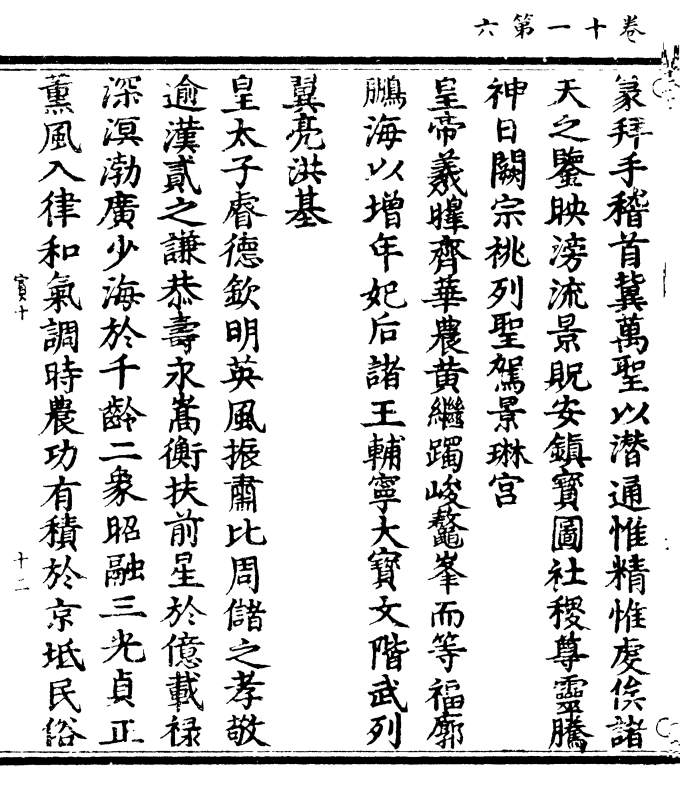 卷十一第六
篆拜手稽首冀萬聖以潜通惟精惟虔俟諸
天之鑒映滂流景貺安鎮寳圖社稷尊靈騰
神日闕宗祧列聖駕景琳宮
皇帝羲曈齊華農黄繼躅峻鼇峯而等福廓
鵬海以增年妃后諸王輔寧大寳文階武列
翼亮洪基
皇太子睿德欽明英風振肅比周儲之孝敬
逾漢貳之謙恭壽永嵩衡扶前星於億載禄
深溟渤廣少海於千齡二象昭融三光貞正
薫風入律和氣調時農功有積於京坻民俗
寳十
十二